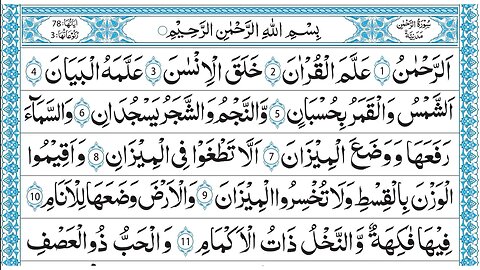 اٰيَاتُهَا: 78 رُكُوعَاتُهَا: 3 بِسْمِ اللّٰهِ الرَّحْمٰنِ الرَّحِيْمِ سُوْرَةُ الرَّحْمٰنِ مَدَنِيَّةٌ
اَلرَّحْمٰنُ 1 عَلَّمَ الْقُرْاٰنَ 2 خَلَقَ الْاِنْسٰنَ 3 عَلَّمَهُ الْبَيَانَ 4
اَلشَّمْسُ وَالْقَمَرُ بِحُسْبَانٍ 5 وَّالنَّجْمُ وَالشَّجَرُ يَسْجُدَانِ 6 وَالسَّمَآءَ
رَفَعَهَا وَوَضَعَ الْمِيْزَانَ 7 اَلَّا تَطْغَوْا فِى الْمِيْزَانِ 8 وَاَقِيْمُوا
الْوَزْنَ بِالْقِسْطِ وَلَا تُخْسِرُوا الْمِيْزَانَ 9 وَالْاَرْضَ وَضَعَهَا لِلْاَنَامِ 10
فِيْهَا فَاكِهَةٌ وَّالنَّخْلُ ذَاتُ الْاَكْمَامِ 11 وَالْحَبُّ ذُو الْعَصْفِ